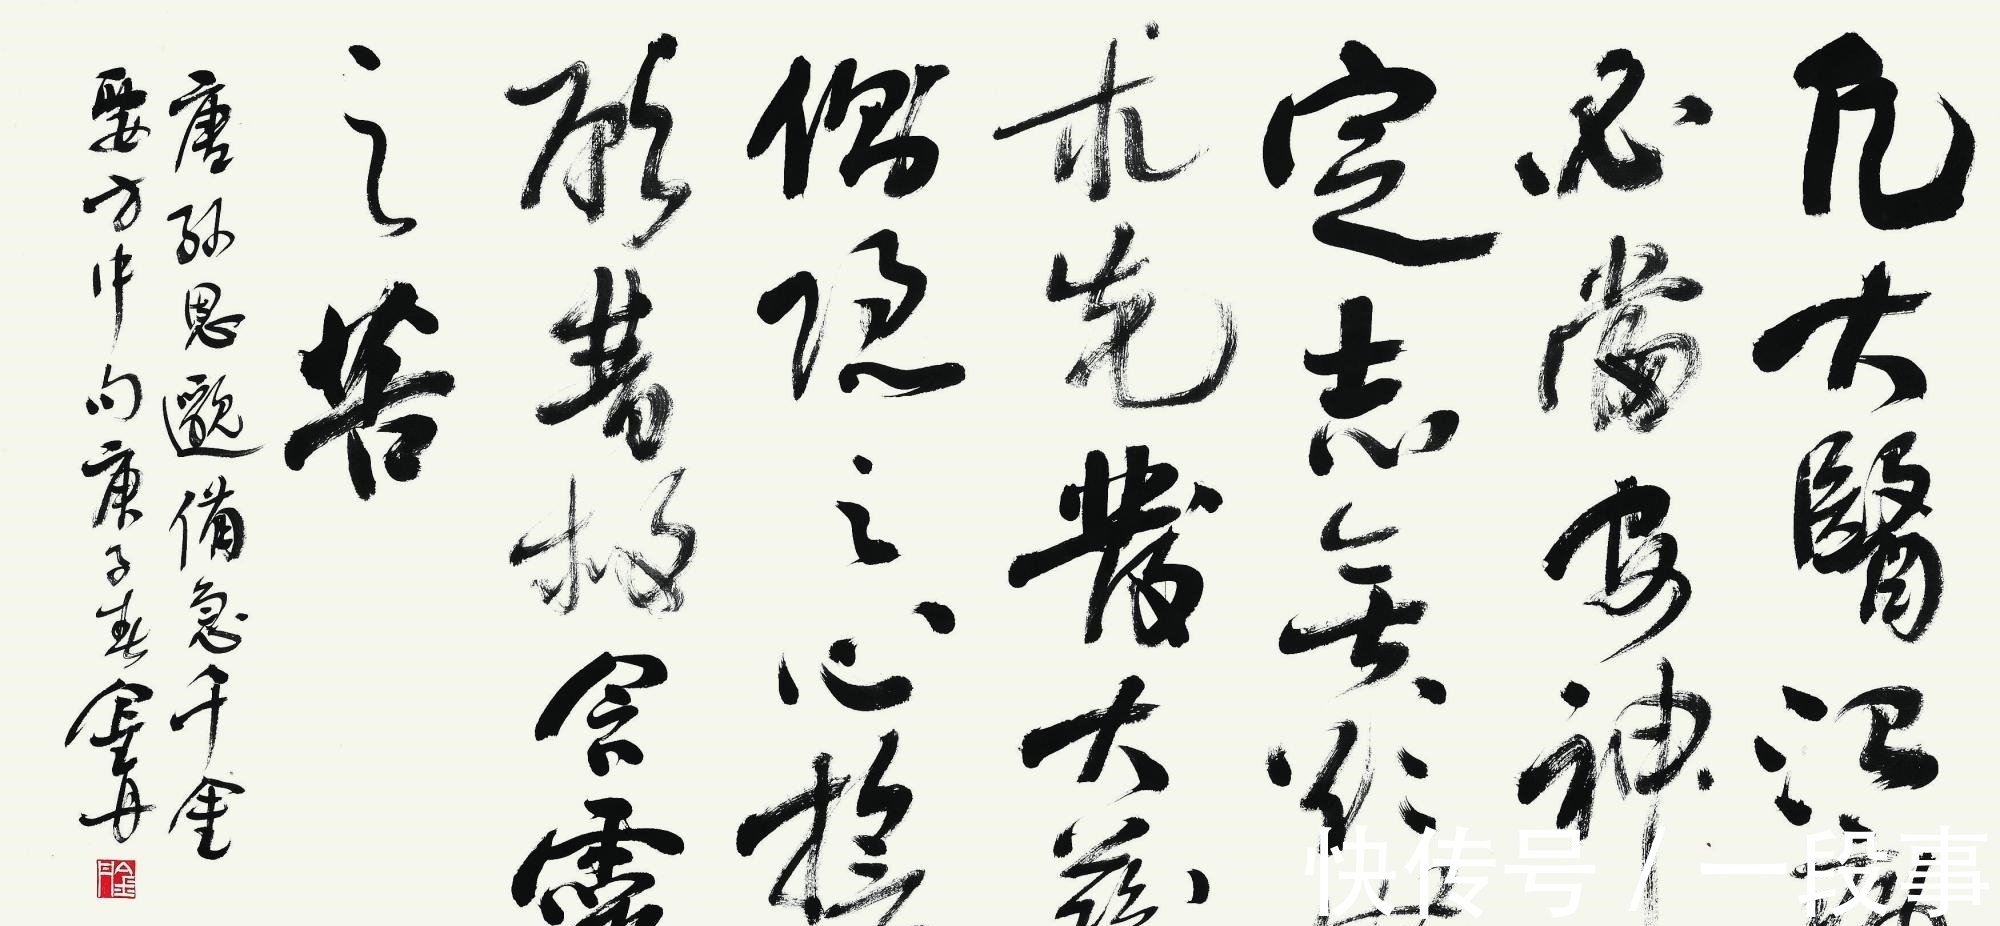 凡大醫治
必當安神
定志無欲
求先發大慈
惻隱之心
願普救含靈
之苦
唐孫思邈備急千金
要方中句庚子春金丹
快传号 / 一段事